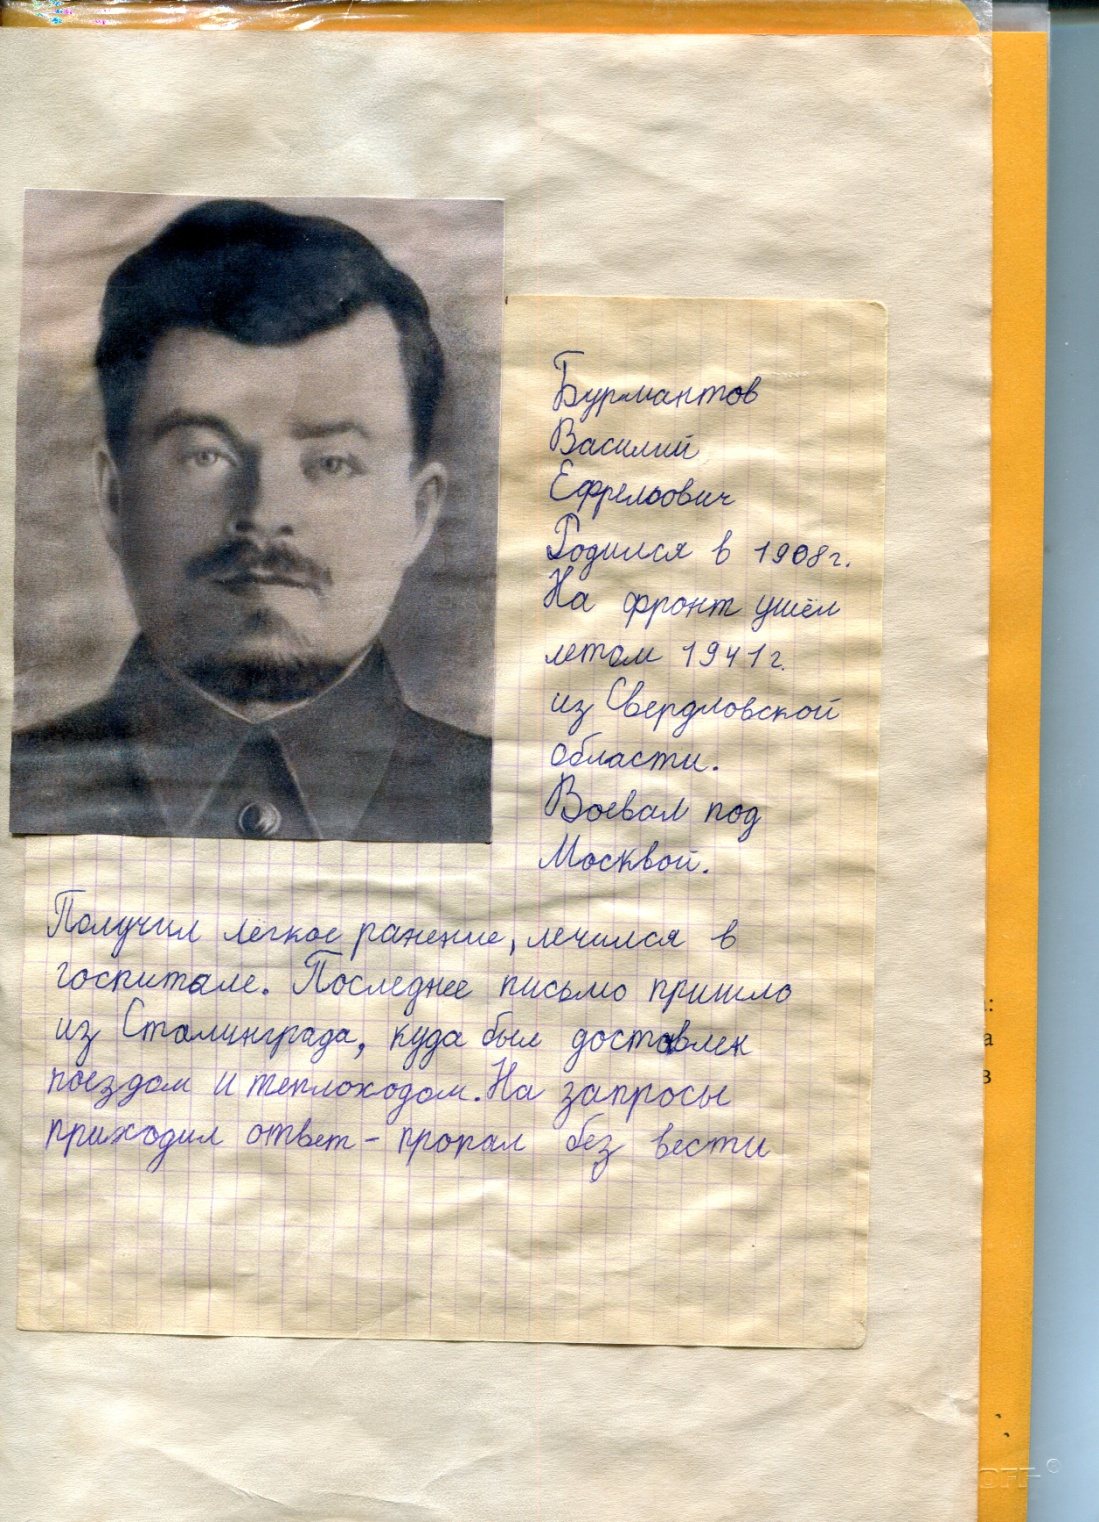 Бурмантов
Василий
Ефремович
Родился в 1908г.
На фронт ушёл
летом 1941г.
из Свердловской
области.
Воевал под
Москвой.
Получил лёгкое ранение, лечился в
госпитале. Последнее письмо пришло
из Сталинграда, куда был доставлен
поездом и теплоходом. На запросы
приходил ответ - пропал без вести
:
а
з